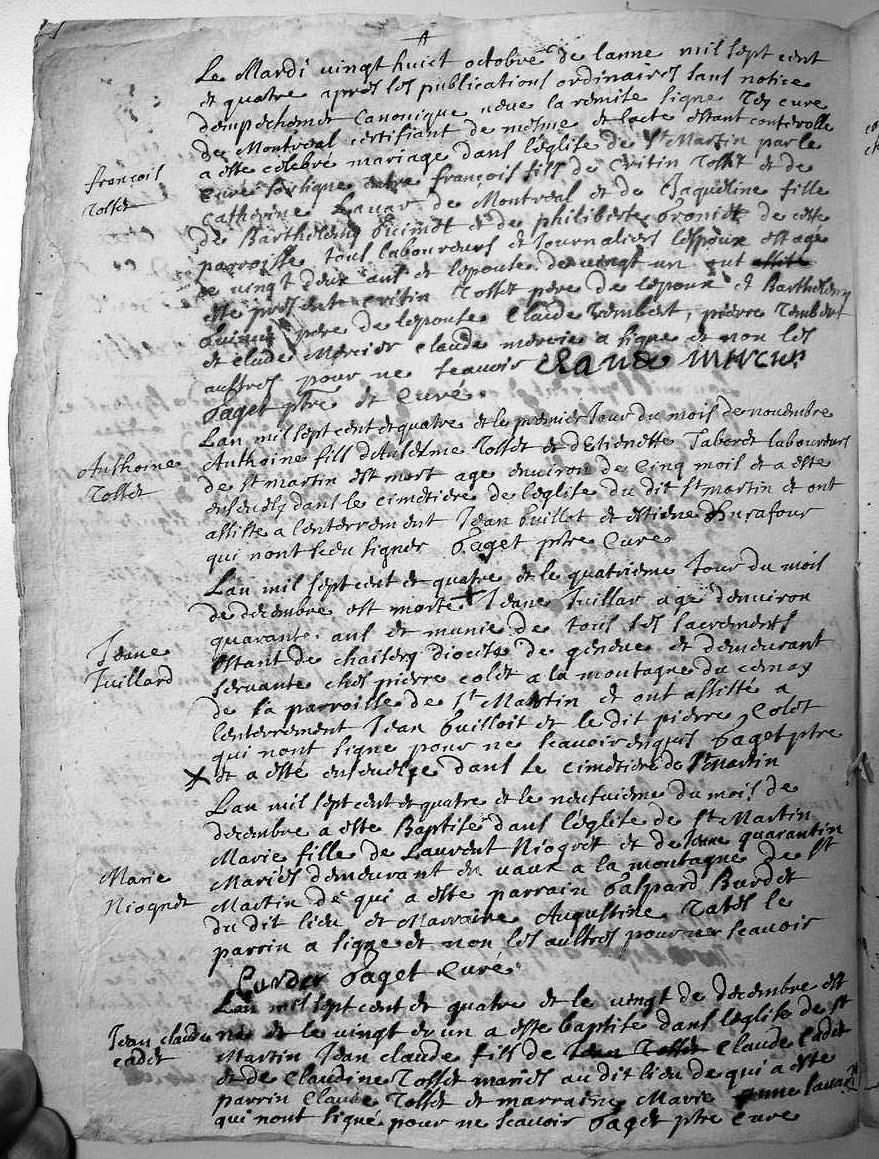 Le Mardi vingt huict octobre de lanne mil sept cent
et quatre apres les publications ordinaires sans notice
dempechement Canonique veue la remise signe Rey cure
de Montreal certifiant de mesme et lacte estant controlle
a este celebré mariage dans leglise de St Martin par le
françois
Cure soussigne entre françois fils de Cretin Rosset et de
Rosset
Catherine Lavar de Montreal et de Jaqueline fille
de Barthelemy et de philiberte de cete
parroisse tous laboureurs et Journaliers lespoux est age
de vingt deux ans et lepouse de vingt un ont
este presents Cretin Rosset pere de lepoux et Barthelemy
pere de lepouse Claude Rembert, pierre Rembert
et Claude Mercier Claude mercie a signe et non les
aultres pour ne scavoir Claude Mercier
paget ptre et Curé
Lan mil sept cent et quatre et le premier Jour du mois de novembre
Anthoine
Anthoine fils dAnselme Rosset et dEtienette Taberet laboureurs
Rosset
de St martin est mort age environ de Cinq mois et a este
ensevely dans le cimetiere de leglise du dit St martin et ont
assiste a lenterrement Jean Guillot et estiene
qui nont sceu signer paget ptre Cure
Lan mil sept cent et quatre et le quatrieme Jour du mois
de decembre est morte Jeane Juillar age denviron
quarante ans et munie de tous les sacrements
Jeane
estant de chaisery diocese de geneve et demeurant
Juillard
servante ches pierre colet a la montagne du cernay
de la parroisse de St Martin et ont assisté a
lenterrement Jean Guilloit et le dit pierre Colet
qui nont signe pour ne scavoir enquis paget ptre
X et a esté ensevelye dans le cimetiere de St Martin
Lan mil sept cent et quatre et le neufvieme du mois de
decembre a este Baptise dans leglise de St Martin
Marie fille de Laurent Nioqret et de Jeane quarantin
Marie
Mariés demeurant en vaux a la montagne de St
Nioqret
Martin de qui a este parrain Gaspard Burdet
du dit lieu et Marraine Augustine Rates le
parrin a signe et non les aultres pour ne scavoir
Burdet paget Curé
Lan mil sept cent et quatre et le vingt de decembre est
Jean claude
né et le vingt et un a este baptise dans leglise de St
cadet
Martin Jean claude fils de Claude Cadet
et de Claudine Rosset mariés au dit lieu de qui a este
parrin Claude Rosset et marraine Marie
qui nont signé pour ne scavoir paget ptre Cure